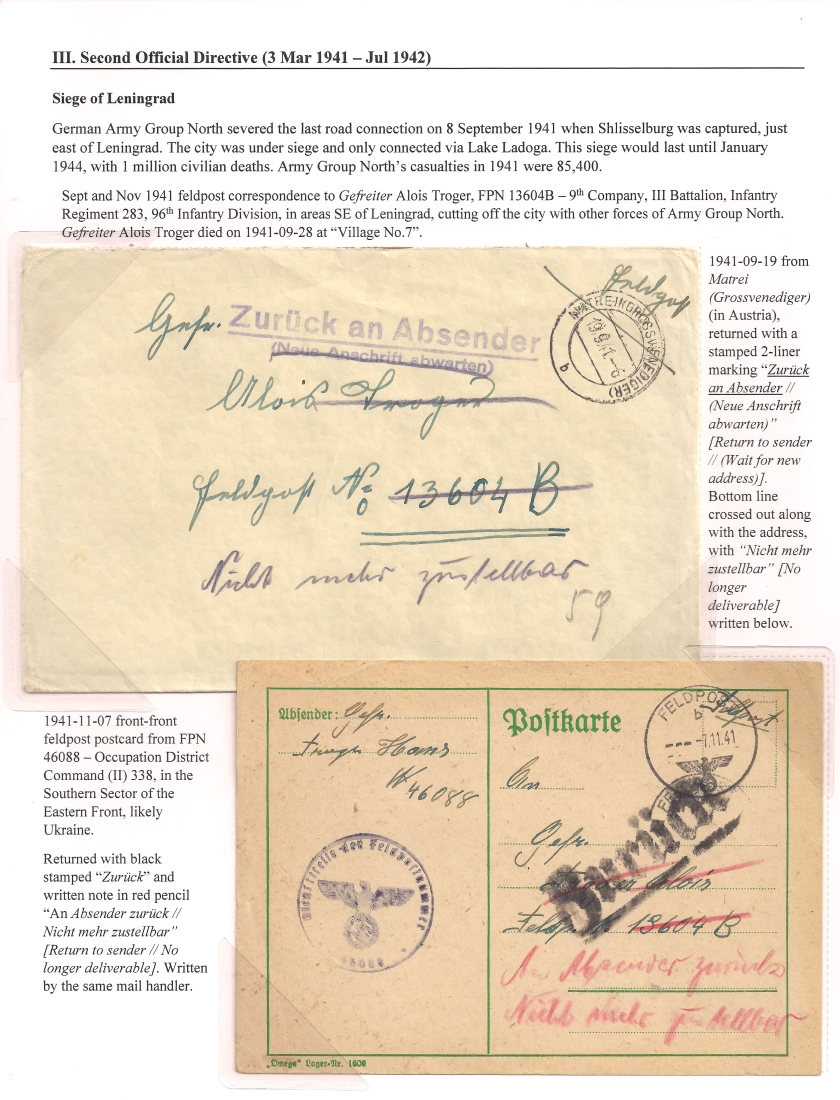 III. Second Official Directive (3 Mar 1941 – Jul 1942)
Siege of Leningrad
German Army Group North severed the last road connection on 8 September 1941 when Shlisselburg was captured, just
east of Leningrad. The city was under siege and only connected via Lake Ladoga. This siege would last until January
1944, with 1 million civilian deaths. Army Group North's casualties in 1941 were 85,400.
Sept and Nov 1941 feldpost correspondence to Gefreiter Alois Troger, FPN 13604B – 9th Company, III Battalion, Infantry
Regiment 283, 96th Infantry Division, in areas SE of Leningrad, cutting off the city with other forces of Army Group North.
Gefreiter Alois Troger died on 1941-09-28 at "Village No.7".
Feldpost
MATREI(GROSSVENEDIGER)
19.9.41.-8
b
Gefr.
Zurück an Absender
(Neue Anschrift abwarten)
Alois Troger
Feldpost No 13604 B
Nicht mehr zustellbar
59
1941-09-19 from
Matrei
(Grossvenediger)
(in Austria),
returned with a
stamped 2-liner
marking "Zurück
an Absender //
(Neue Anschrift
abwarten)"
[Return to sender
// (Wait for new
address)].
Bottom line
crossed out along
with the address,
with "Nicht mehr
zustellbar" [No
longer
deliverable]
written below.
1941-11-07 front-front
feldpost postcard from FPN
46088 – Occupation District
Command (II) 338, in the
Southern Sector of the
Eastern Front, likely
Ukraine.
Returned with black
stamped "Zurück" and
written note in red pencil
"An Absender zurück //
Nicht mehr zustellbar"
[Return to sender // No
longer deliverable]. Written
by the same mail handler.
Absender: Gefr.
Troger Hans
46088
Dienststelle der Feldpostnummer
46088
Postkarte
Feldpost
FELDPOST
b
-7.11.41
An
Gefr.
Zurück
Troger Alois
Feldp. N 13604 B
An Absender zurück
Nicht mehr zustellbar
„Omega" Lager-Nr. 1600